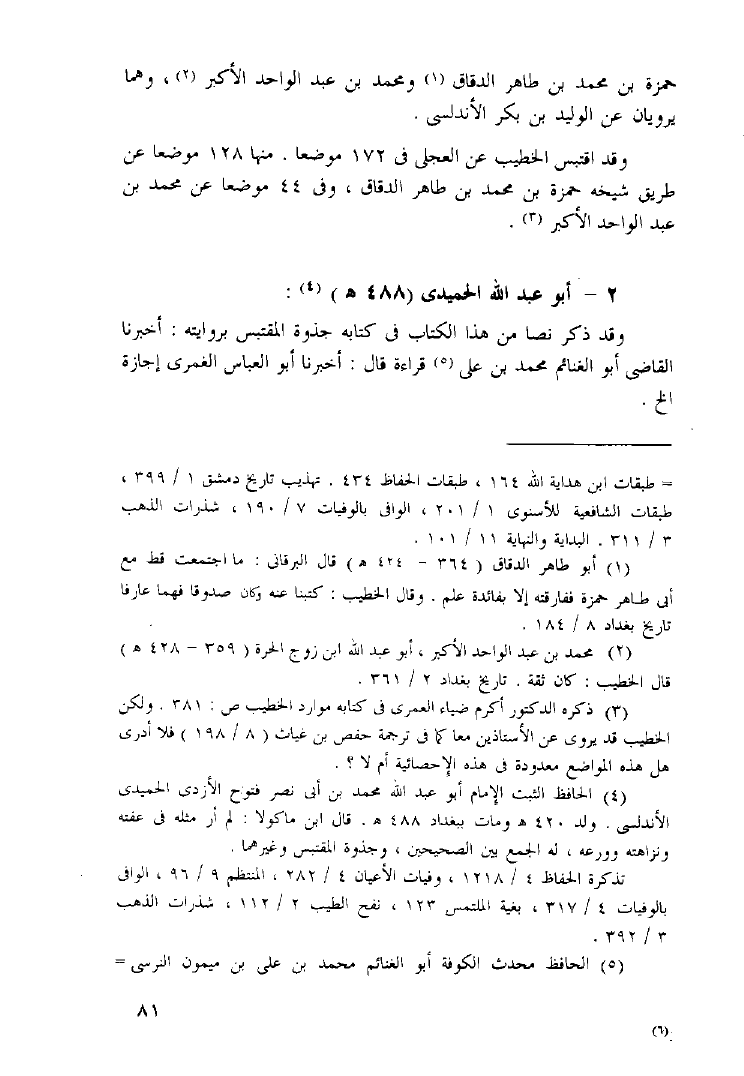 حمزة بن محمد بن طاهر الدقاق (١) ومحمد بن عبد الواحد الأكبر (٢) ، وهما
يرويان عن الوليد بن بكر الأندلسى .
وقد اقتبس الخطيب عن العجلى فى ١٧٢ موضعا . منها ١٢٨ موضعا عن
طريق شيخه حمزة بن محمد بن طاهر الدقاق ، وفى ٤٤ موضعا عن محمد بن
عبد الواحد الأكبر (٣) .
٢ – أبو عبد الله الحميدى (٤٨٨ ھ ) (٤) :
وقد ذكر نصا من هذا الكتاب فى كتابه جذوة المقتبس بروايته : أخبرنا
القاضى أبو الغنائم محمد بن على (٥) قراءة قال : أخبرنا أبو العباس الغمرى إجازة
الخ .
= طبقات ابن هداية الله ١٦٤ ، طبقات الحفاظ ٤٣٤ . تهذيب تاريخ دمشق ١ / ٣٩٩ ،
طبقات الشافعية للأسنوى ١ / ٢٠١ ، الوافى بالوفيات ٧ / ١٩٠ ، شذرات الذهب
٣ / ٣١١ . البداية والنهاية ١١ / ١٠١ .
(١) أبو طاهر الدقاق ( ٣٦٤ – ٤٢٤ ھ ) قال البرقانى : ما اجتمعت قط مع
أبى طاهر حمزة ففارقته إلا بفائدة علم . وقال الخطيب : كتبنا عنه وكان صدوقا فهما عارفا
تاريخ بغداد ٨ / ١٨٤ .
(٢) محمد بن عبد الواحد الأكبر ، أبو عبد الله ابن زوج الحرة ( ٣٥٩ – ٤٢٨ ھ )
قال الخطيب : كان ثقة . تاريخ بغداد ٢ / ٣٦١ .
(٣) ذكره الدكتور أكرم ضياء العمرى فى كتابه موارد الخطيب ص : ٣٨١ . ولكن
الخطيب قد يروى عن الأستاذين معا كما فى ترجمة حفص بن غياث ( ٨ / ١٩٨ ) فلا أدرى
هل هذه المواضع معدودة فى هذه الإحصائية أم لا ؟ .
(٤) الحافظ الثبت الإمام أبو عبد الله محمد بن أبى نصر فتوح الأزدى الحميدى
الأندلسى . ولد ٤٢٠ ھ ومات ببغداد ٤٨٨ ھ . قال ابن ماكولا : لم أر مثله فى عفته
ونزاهته وورعه ، له الجمع بين الصحيحين ، وجذوة المقتبس وغيرهما .
تذكرة الحفاظ ٤ / ١٢١٨ ، وفيات الأعيان ٤ / ٢٨٢ ، المنتظم ٩ / ٩٦ ، الوافى
بالوفيات ٤ / ٣١٧ ، بغية الملتمس ١٢٣ ، نفح الطيب ٢ / ١١٢ ، شذرات الذهب
٣ / ٣٩٢ .
(٥) الحافظ محدث الكوفة أبو الغنائم محمد بن على بن ميمون النرسى =
٨١
(٦)